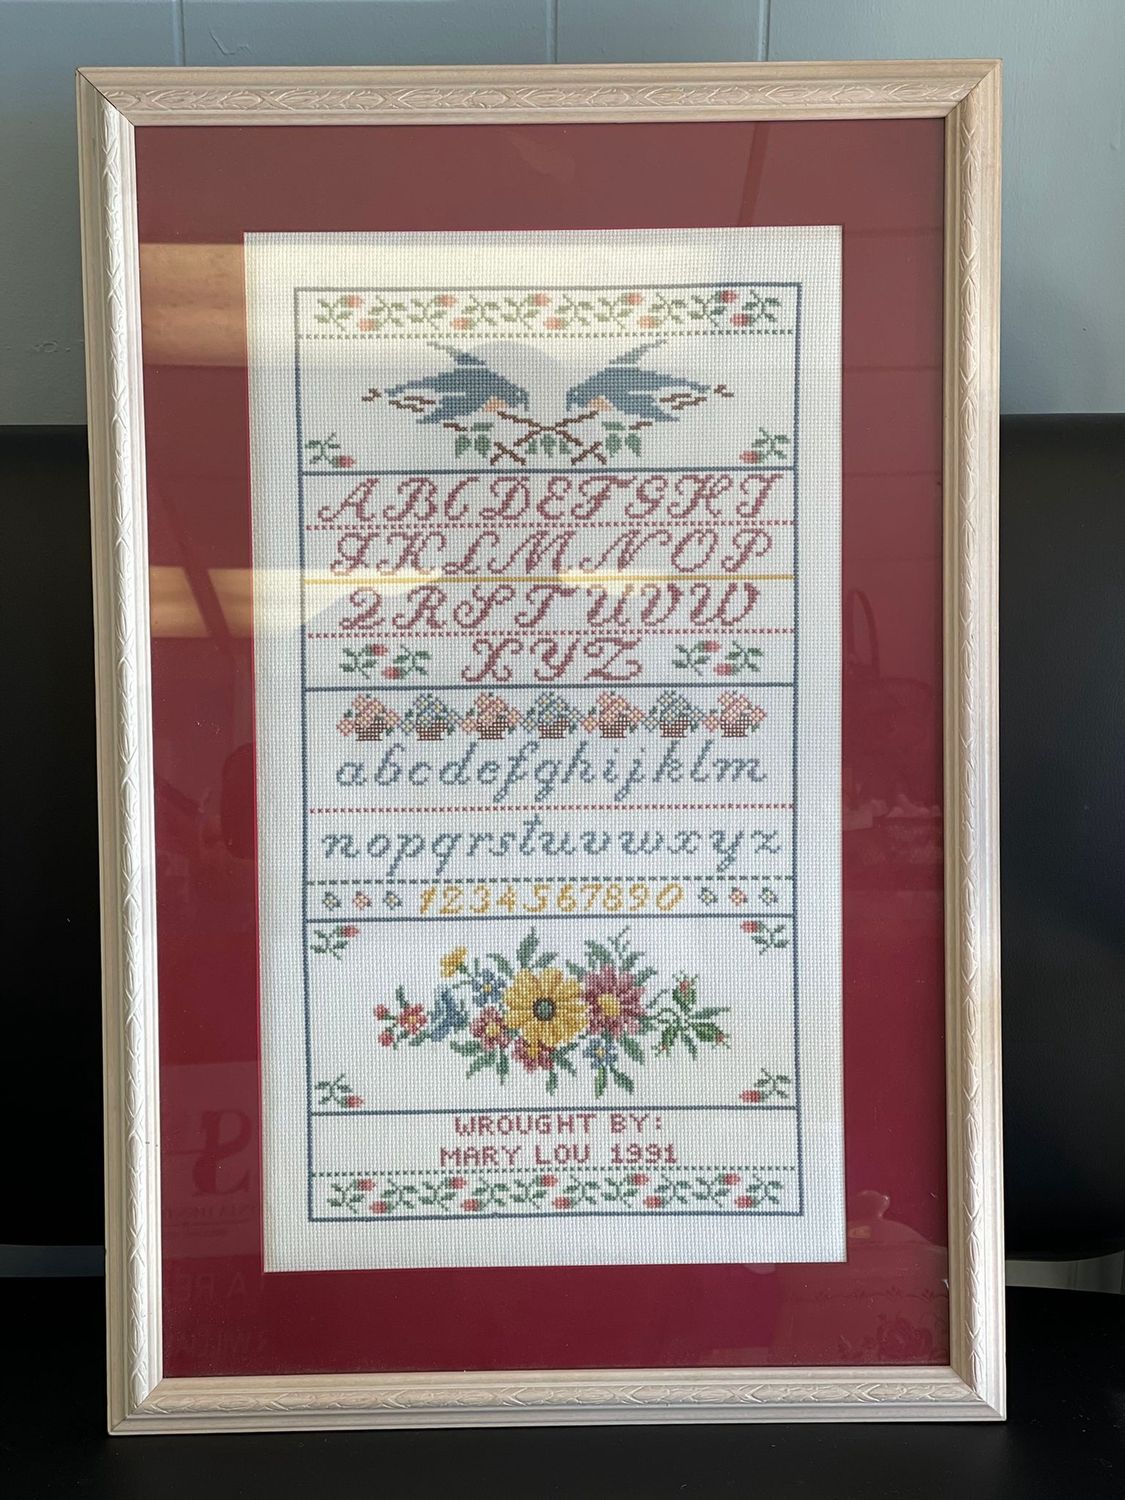 ABCDEFGHI
JKLMNOP
QRSTUVW
XYZ
abcdefghijklm
nopqrstuvwxyz
1234567890
WROUGHT BY:
MARY LOU 1991